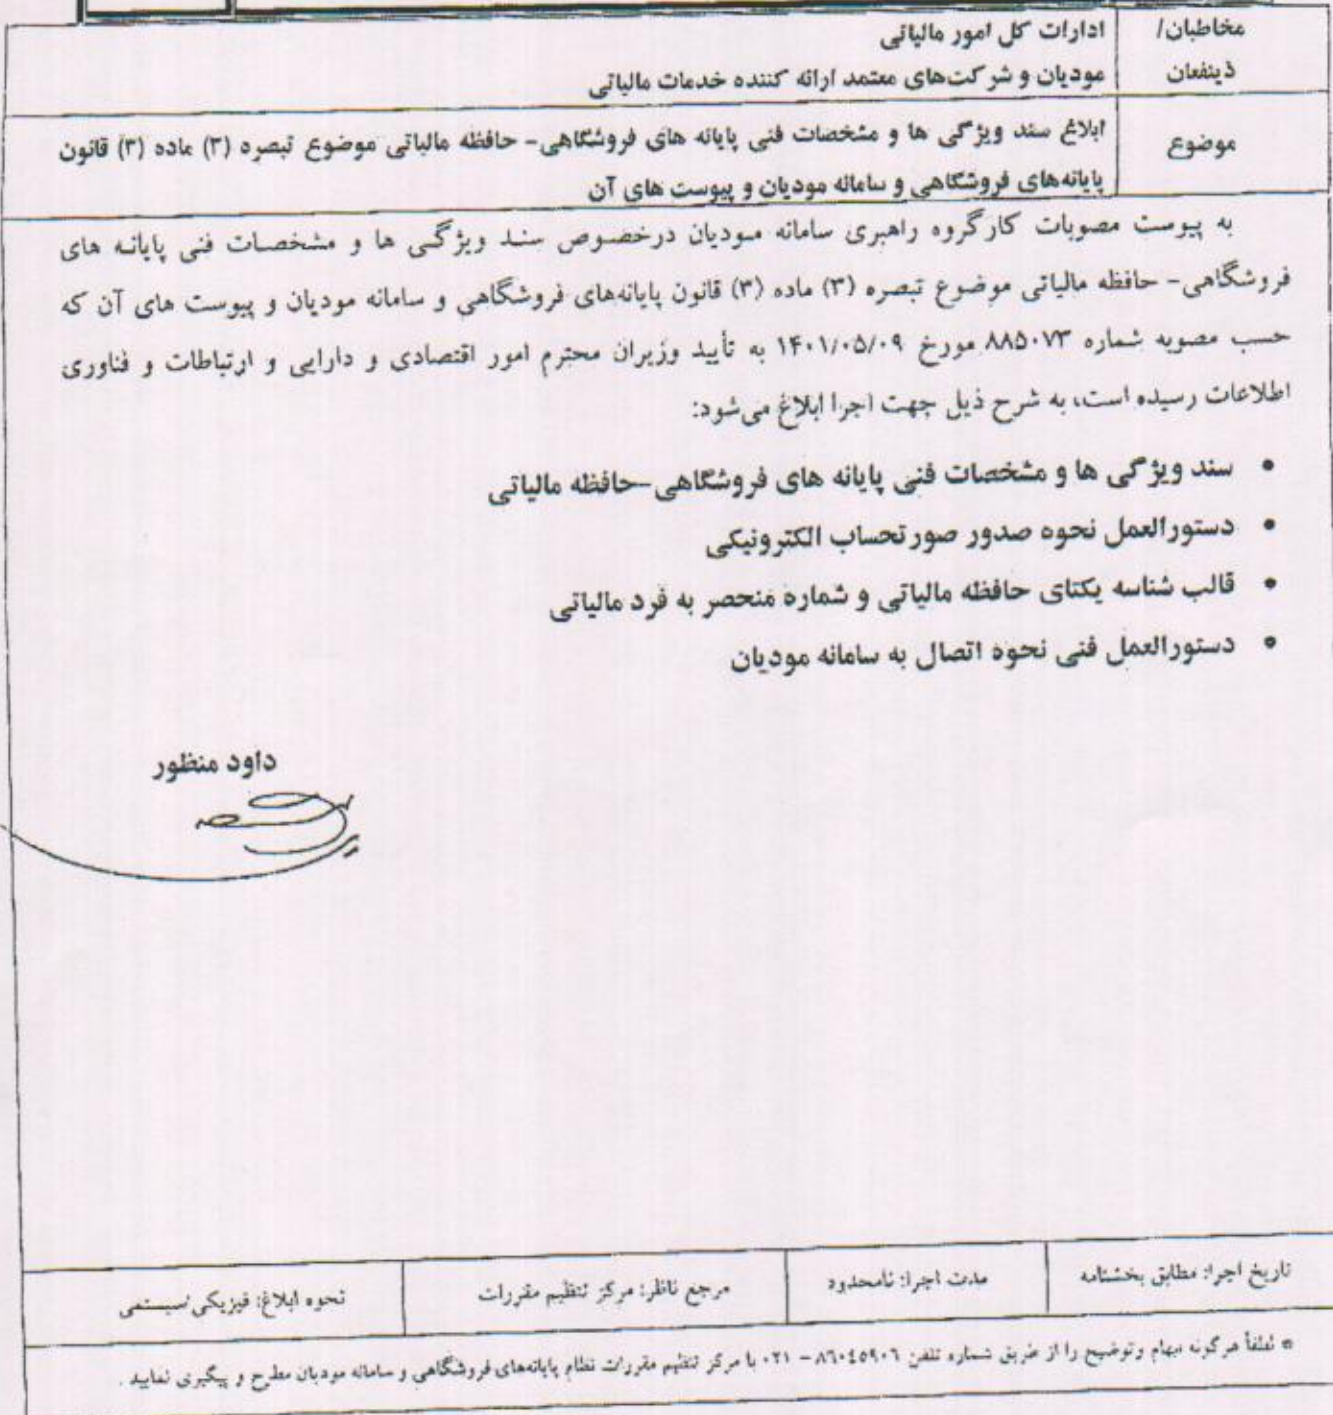 مخاطبان/ ادارات کل امور مالیاتی
ذینفعان مودیان و شرکت‌های معتمد ارائه کننده خدمات مالیاتی
موضوع ابلاغ سند ویژگی ها و مشخصات فنی پایانه های فروشگاهی- حافظه مالیاتی موضوع تبصره (۳) ماده (۳) قانون
پایانه‌های فروشگاهی و سامانه مودیان و پیوست های آن
به پیوست مصوبات کارگروه راهبری سامانه مودیان درخصوص سند ویژگی ها و مشخصات فنی پایانه های
فروشگاهی- حافظه مالیاتی موضوع تبصره (۳) ماده (۳) قانون پایانه‌های فروشگاهی و سامانه مودیان و پیوست های آن که
حسب مصوبه شماره ۸۸۵۰۷۳ مورخ ۱۴۰۱/۰۵/۰۹ به تأیید وزیران محترم امور اقتصادی و دارایی و ارتباطات و فناوری
اطلاعات رسیده است، به شرح ذیل جهت اجرا ابلاغ می‌شود:
• سند ویژگی ها و مشخصات فنی پایانه های فروشگاهی-حافظه مالیاتی
• دستورالعمل نحوه صدور صورتحساب الکترونیکی
• قالب شناسه یکتای حافظه مالیاتی و شماره منحصر به فرد مالیاتی
• دستورالعمل فنی نحوه اتصال به سامانه مودیان
داود منظور
تاریخ اجرا: مطابق بخشنامه مدت اجرا: نامحدود مرجع ناظر: مرکز تنظیم مقررات نحوه ابلاغ: فیزیکی/سیستمی
* لطفاً هرگونه ابهام وتوضیح را از طریق شماره تلفن ۸۶۰۴۵۹۰۶ – ۰۲۱ با مرکز تنظیم مقررات نظام پایانه‌های فروشگاهی و سامانه مودیان مطرح و پیگیری نمایید .